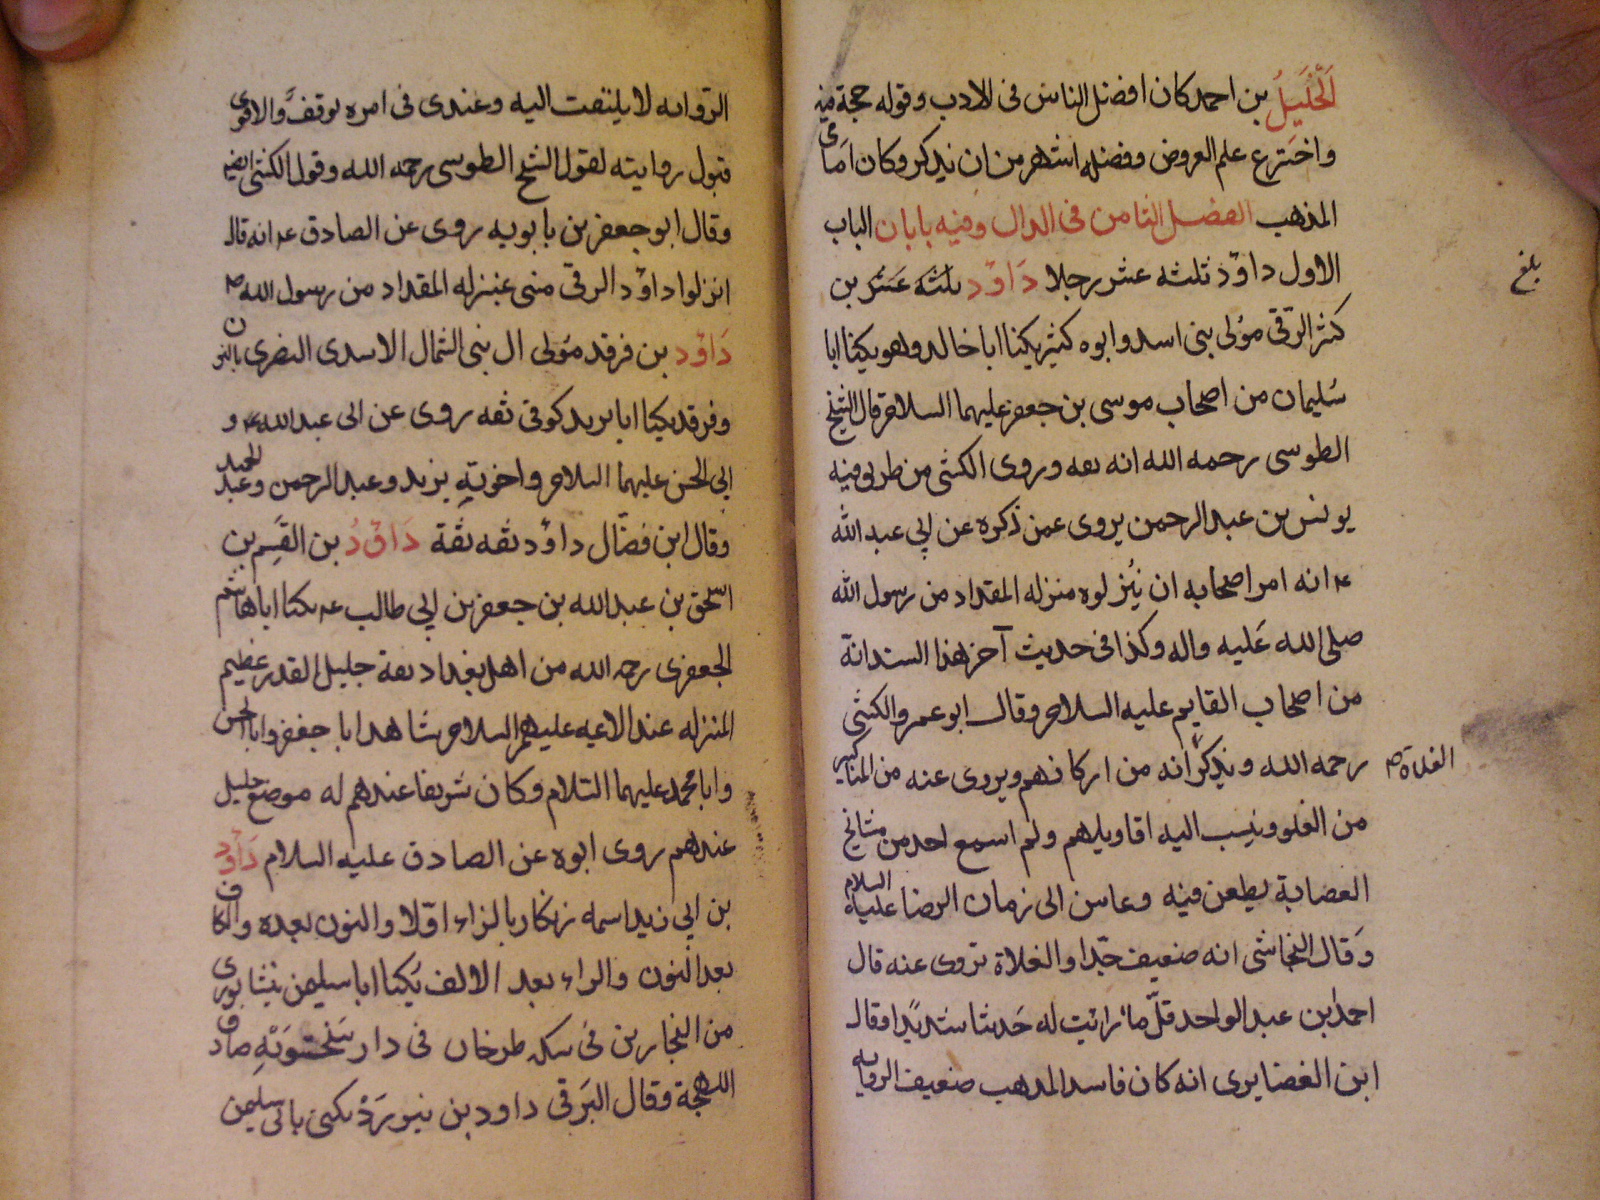 الخليل بن احمد كان افضل الناس فى الادب وقوله حجة فيه
واخترع علم العروض وفضله اشهر من ان يذكر وكان امامى
المذهب الفصل الثامن فى الدال وفيه بابان الباب
الاول داود ثلثه عشر رجلا داود ثلثه عشر بن
كثير الرقى مولى بنى اسد وابوه كثير يكنا ابا خالد وهو يكنا ابا
سليمان من اصحاب موسى بن جعفر عليهما السلام قال الشيخ
الطوسى رحمه الله انه ثقه وروى الكشى من طريق فيه
يونس بن عبد الرحمن يروى عمن ذكره عن ابى عبد الله
ع انه امر اصحابه ان ينزلوه منزله المقداد من رسول الله
صلى الله عليه واله وكذا فى حديث آخر هذا السند انه
من اصحاب القايم عليه السلام وقال ابو عمرو الكشى
رحمه الله ويذكر الغلاة انه من اركانهم ويروى عنه من المناكير
من الغلو وينسب اليه اقاويلهم ولم اسمع احد من مشايخ
العصابة يطعن فيه وعاش الى زمان الرضا عليه السلام
وقال النجاشى انه ضعيف جدا والغلاة تروى عنه قال
احمد بن عبد الواحد قل ما رايت له حديثا سديدا وقال
ابن الغضايرى انه كان فاسد المذهب ضعيف الروايه
بلغ
الروايه لا يلتفت اليه وعندى فى امره توقف والاقوى
قبول روايته لقول الشيخ الطوسى رحمه الله وقول الكشى ايضا
وقال ابو جعفر بن بابويه روى عن الصادق ع انه قال
انزلوا داود الرقى منى بمنزله المقداد من رسول الله ص
داود بن فرقد مولى ال بنى السمال الاسدى النصرى بالنون
وفرقد يكنا ابا يزيد كوفى ثقه روى عن ابى عبد الله و
ابى الحسن عليهما السلام واخوته يزيد وعبد الرحمن وعبد الحميد
وقال ابن فضال داود ثقه ثقة داود بن القسم بن
اسحق بن عبد الله بن جعفر بن ابى طالب ع يكنا ابا هاشم
الجعفرى رحمه الله من اهل بغداد ثقة جليل القدر عظيم
المنزله عند الائمه عليهم السلام شاهد ابا جعفر وابا الحسن
وابا محمد عليهما السلام وكان شريفا عندهم له موضع جليل
عندهم روى ابوه عن الصادق عليه السلام داود
بن ابى زيد اسمه زنكار بالزاء اولا والنون بعده والكاف
بعد النون والراء بعد الالف يكنا ابا سليمن نيشابورى
من النجارين فى سكه طرخان فى دار سختويه صادق
اللهجة وقال البرقى داود بن بنيورد يكنى بابى سليمن